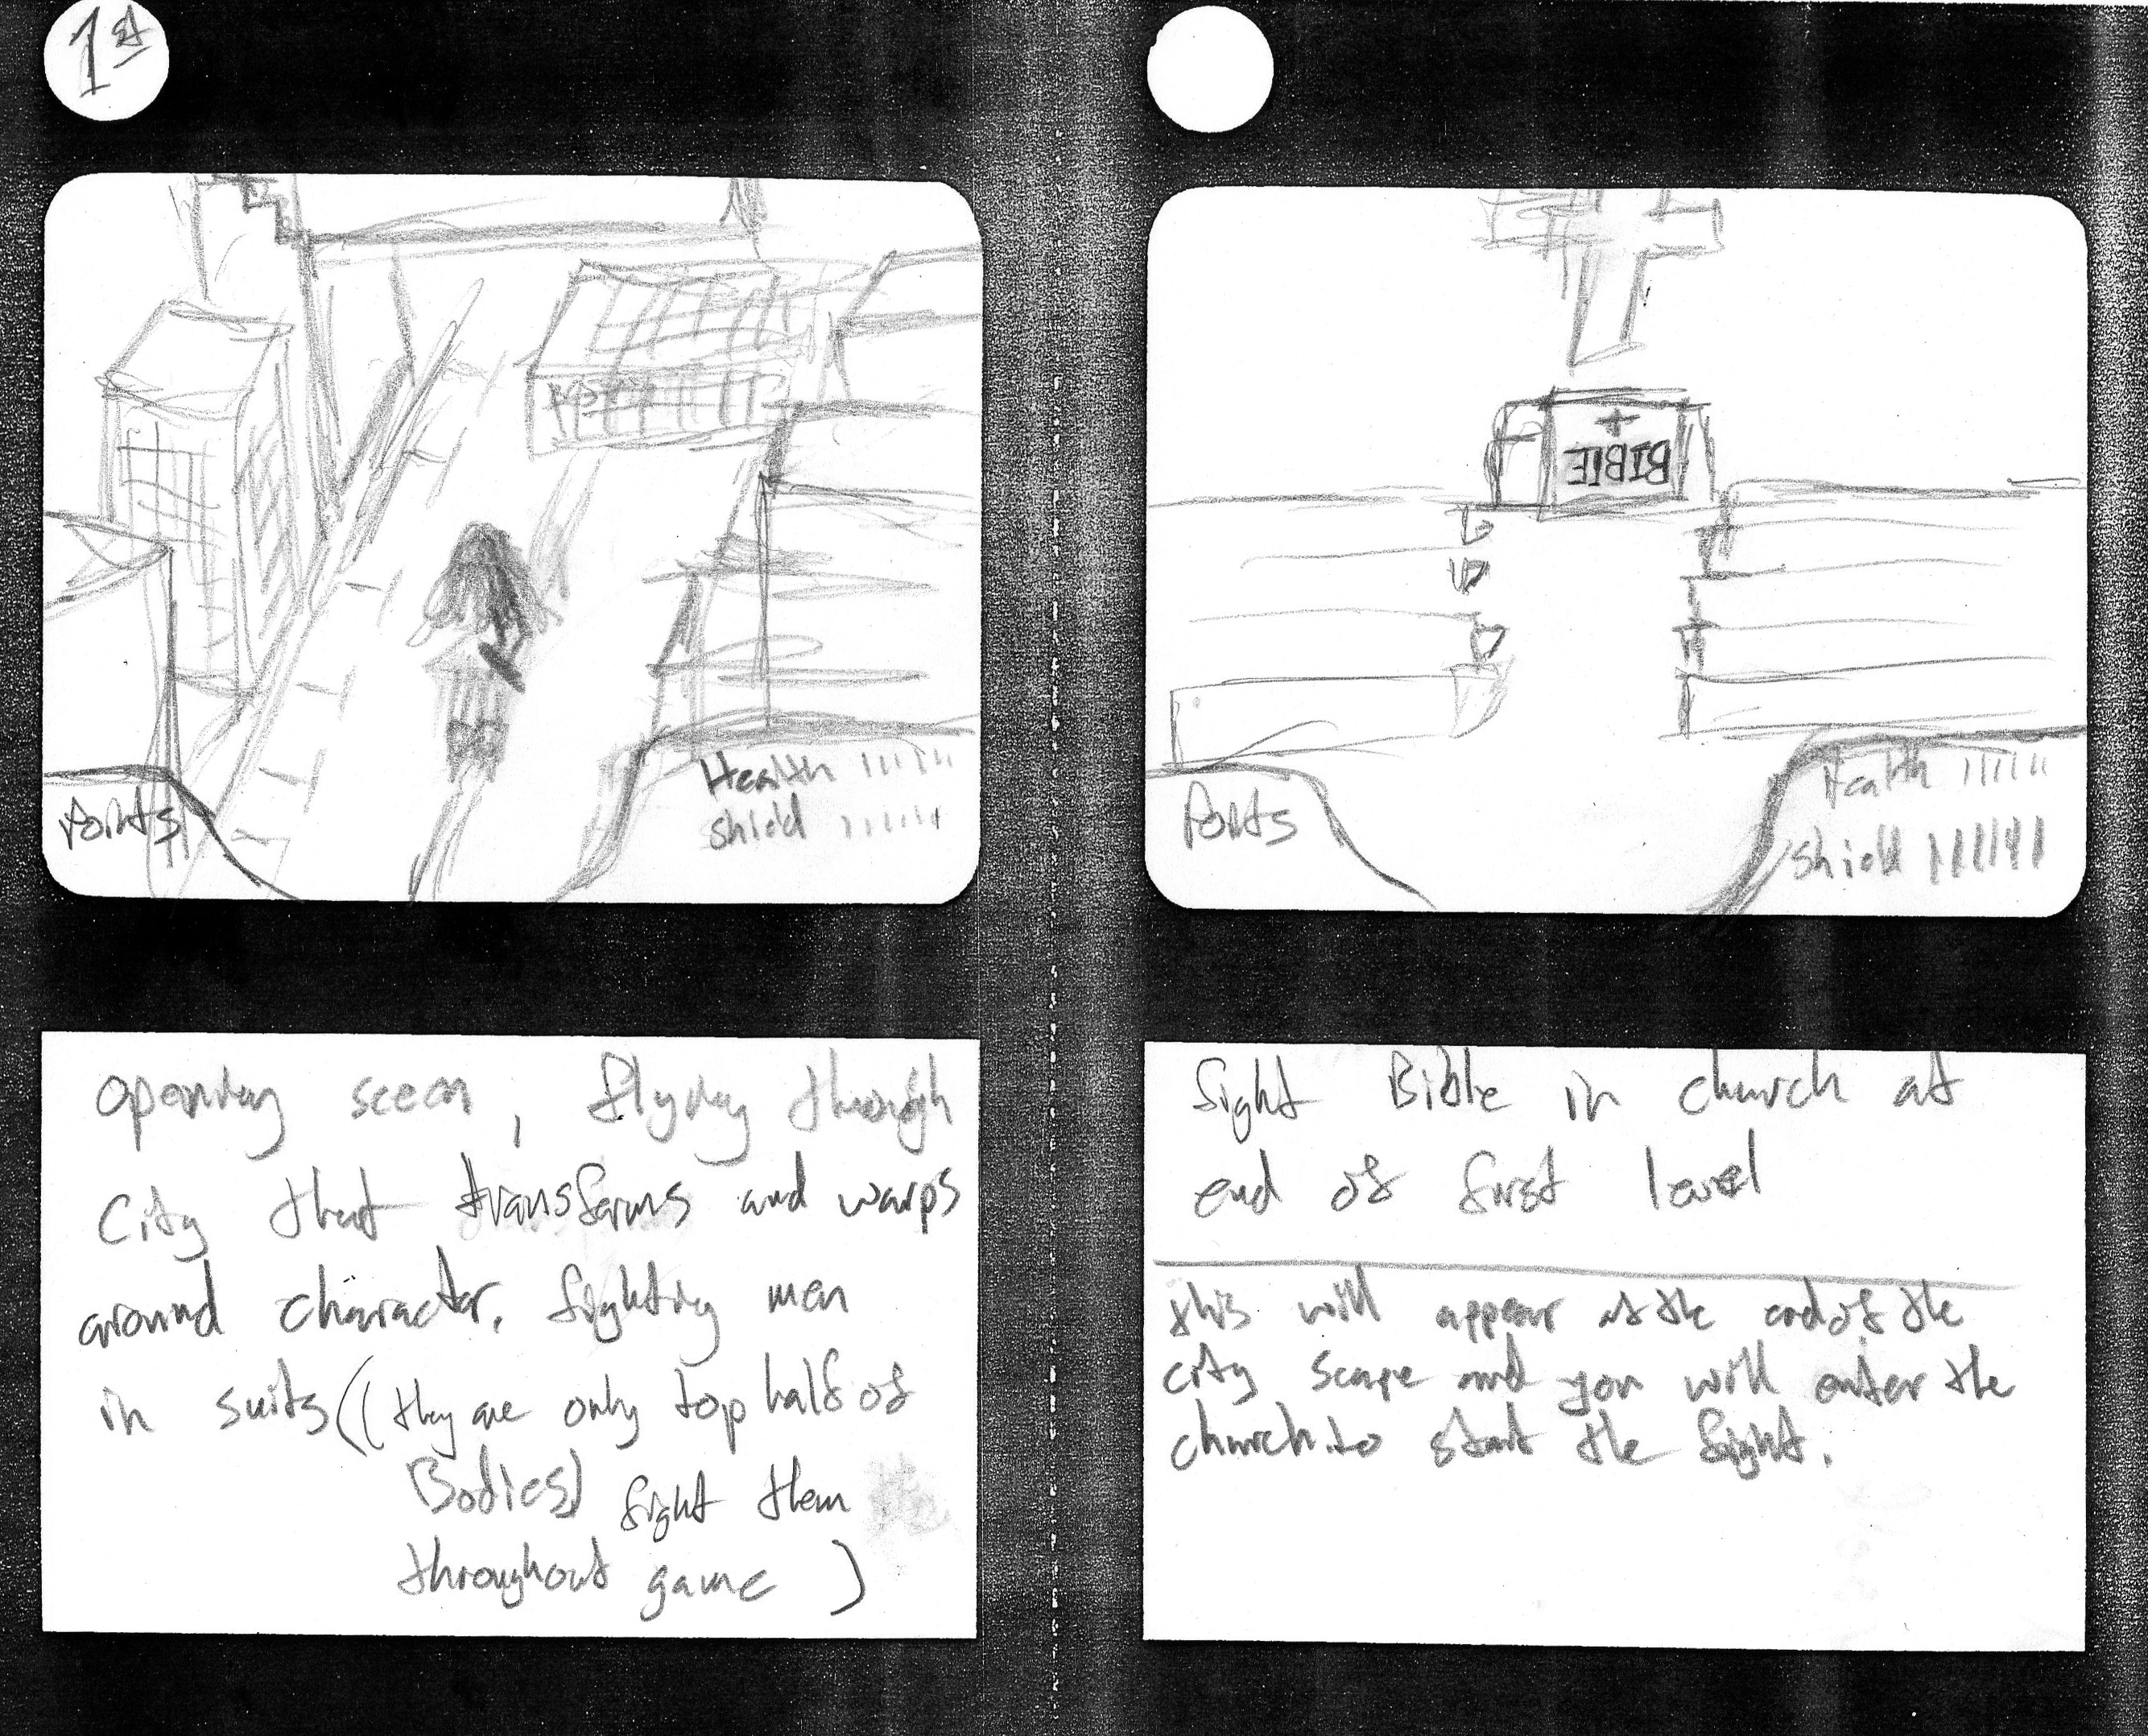 1st
Points
Health
Shield
opening sceen, flying through
city that transforms and warps
around character. fighting men
in suits ((they are only top half of
Bodies) fight them
throughout game )
BIBlE
Points
Health
Shield
fight Bible in church at
end of first level
this will appear at the end of the
city scape and you will enter the
church.to start the fight.